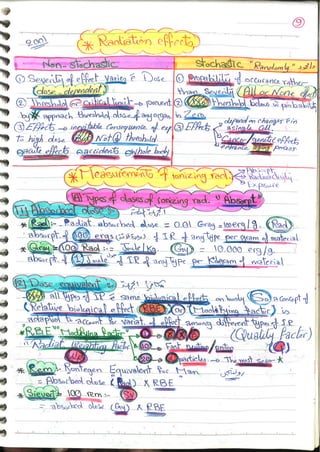 9
* Radiation effects
Non-Stochastic
Stochastic "Randomly"
① Severity of effect varies c̄ Dose
(dose-dependent)
② Threshold or critical limit → prevent
by approach threshold dose of any organ
③ Effects → inevitable consequence of exp
to high dose But Not @ threshold
acute effects accidents whole body
① Probability of occurance rather
than Severity (All or None effect)
② No threshold below is probability
is Zero
③ Effects depend on changes in
a single cell
Cancer/genetic effects
* Measurement of ionizing rad.
Exposure
Types of doses of ionizing rad. "Absorpt"
[1] Absorbed dose :-
* Rad :- Radiat. absorbed dose = 0.01 Gray = 100 erg/g. (Rad)
absorpt. of 100 ergs of IR of any type per gram of material
* Gray = 100 Rad :- = Joule/Kg (Gy) = 10.000 erg/g.
absorpt. of 1 Joule of IR of any type per kilogram of material
[2] Dose equivalent :-
all types of IR ≠ same biological effects on body So a concept of
(Relative biological effect RBE or (Modifying Factor) is
adapted to account for variat. of effect among different types of IR
"RBE" "Modifying Factor"
(Quality Factor)
"Radiat Weighting Factor"
10 Fast neutron/proton
20 α particles → The most sever *
* Rem :- Rontegen Equivalent For Man
= Absorbed dose (Rad) X RBE
* Sievert = 100 rem :- Sv
= absorbed dose (Gy) X RBE